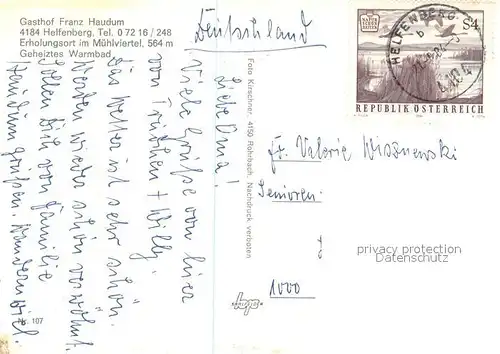 Gasthof Franz Haudum
4184 Helfenberg, Tel. 0 72 16 / 248
Erholungsort im Mühlviertel, 564 m
Geheiztes Warmbad
Deutschland
Liebe Oma!
Viele Grüße von hier
von Trudchen + Willy.
Das Wetter ist sehr schön.
Werden wieder schön verwöhnt.
Sollen Dich von Familie
Haudum grüßen. Wandern viel.
Nr. 107
Foto Kirschner, 4150 Rohrbach. Nachdruck verboten
HELFENBERG
S4
REPUBLIK ÖSTERREICH
Fr. Valerie Wisznewski
Senioren
1000
4184
privacy protection
AnsichtskartenCenter